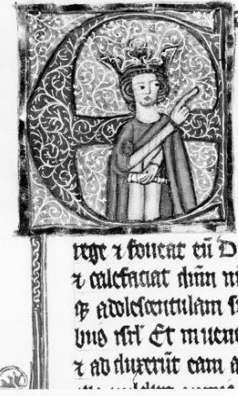 rege ⁊ foueat eū D
⁊ calefaciat dnm n
q; adolescentulam s
bus isrl Et inuene
⁊ adduxerūt eam a